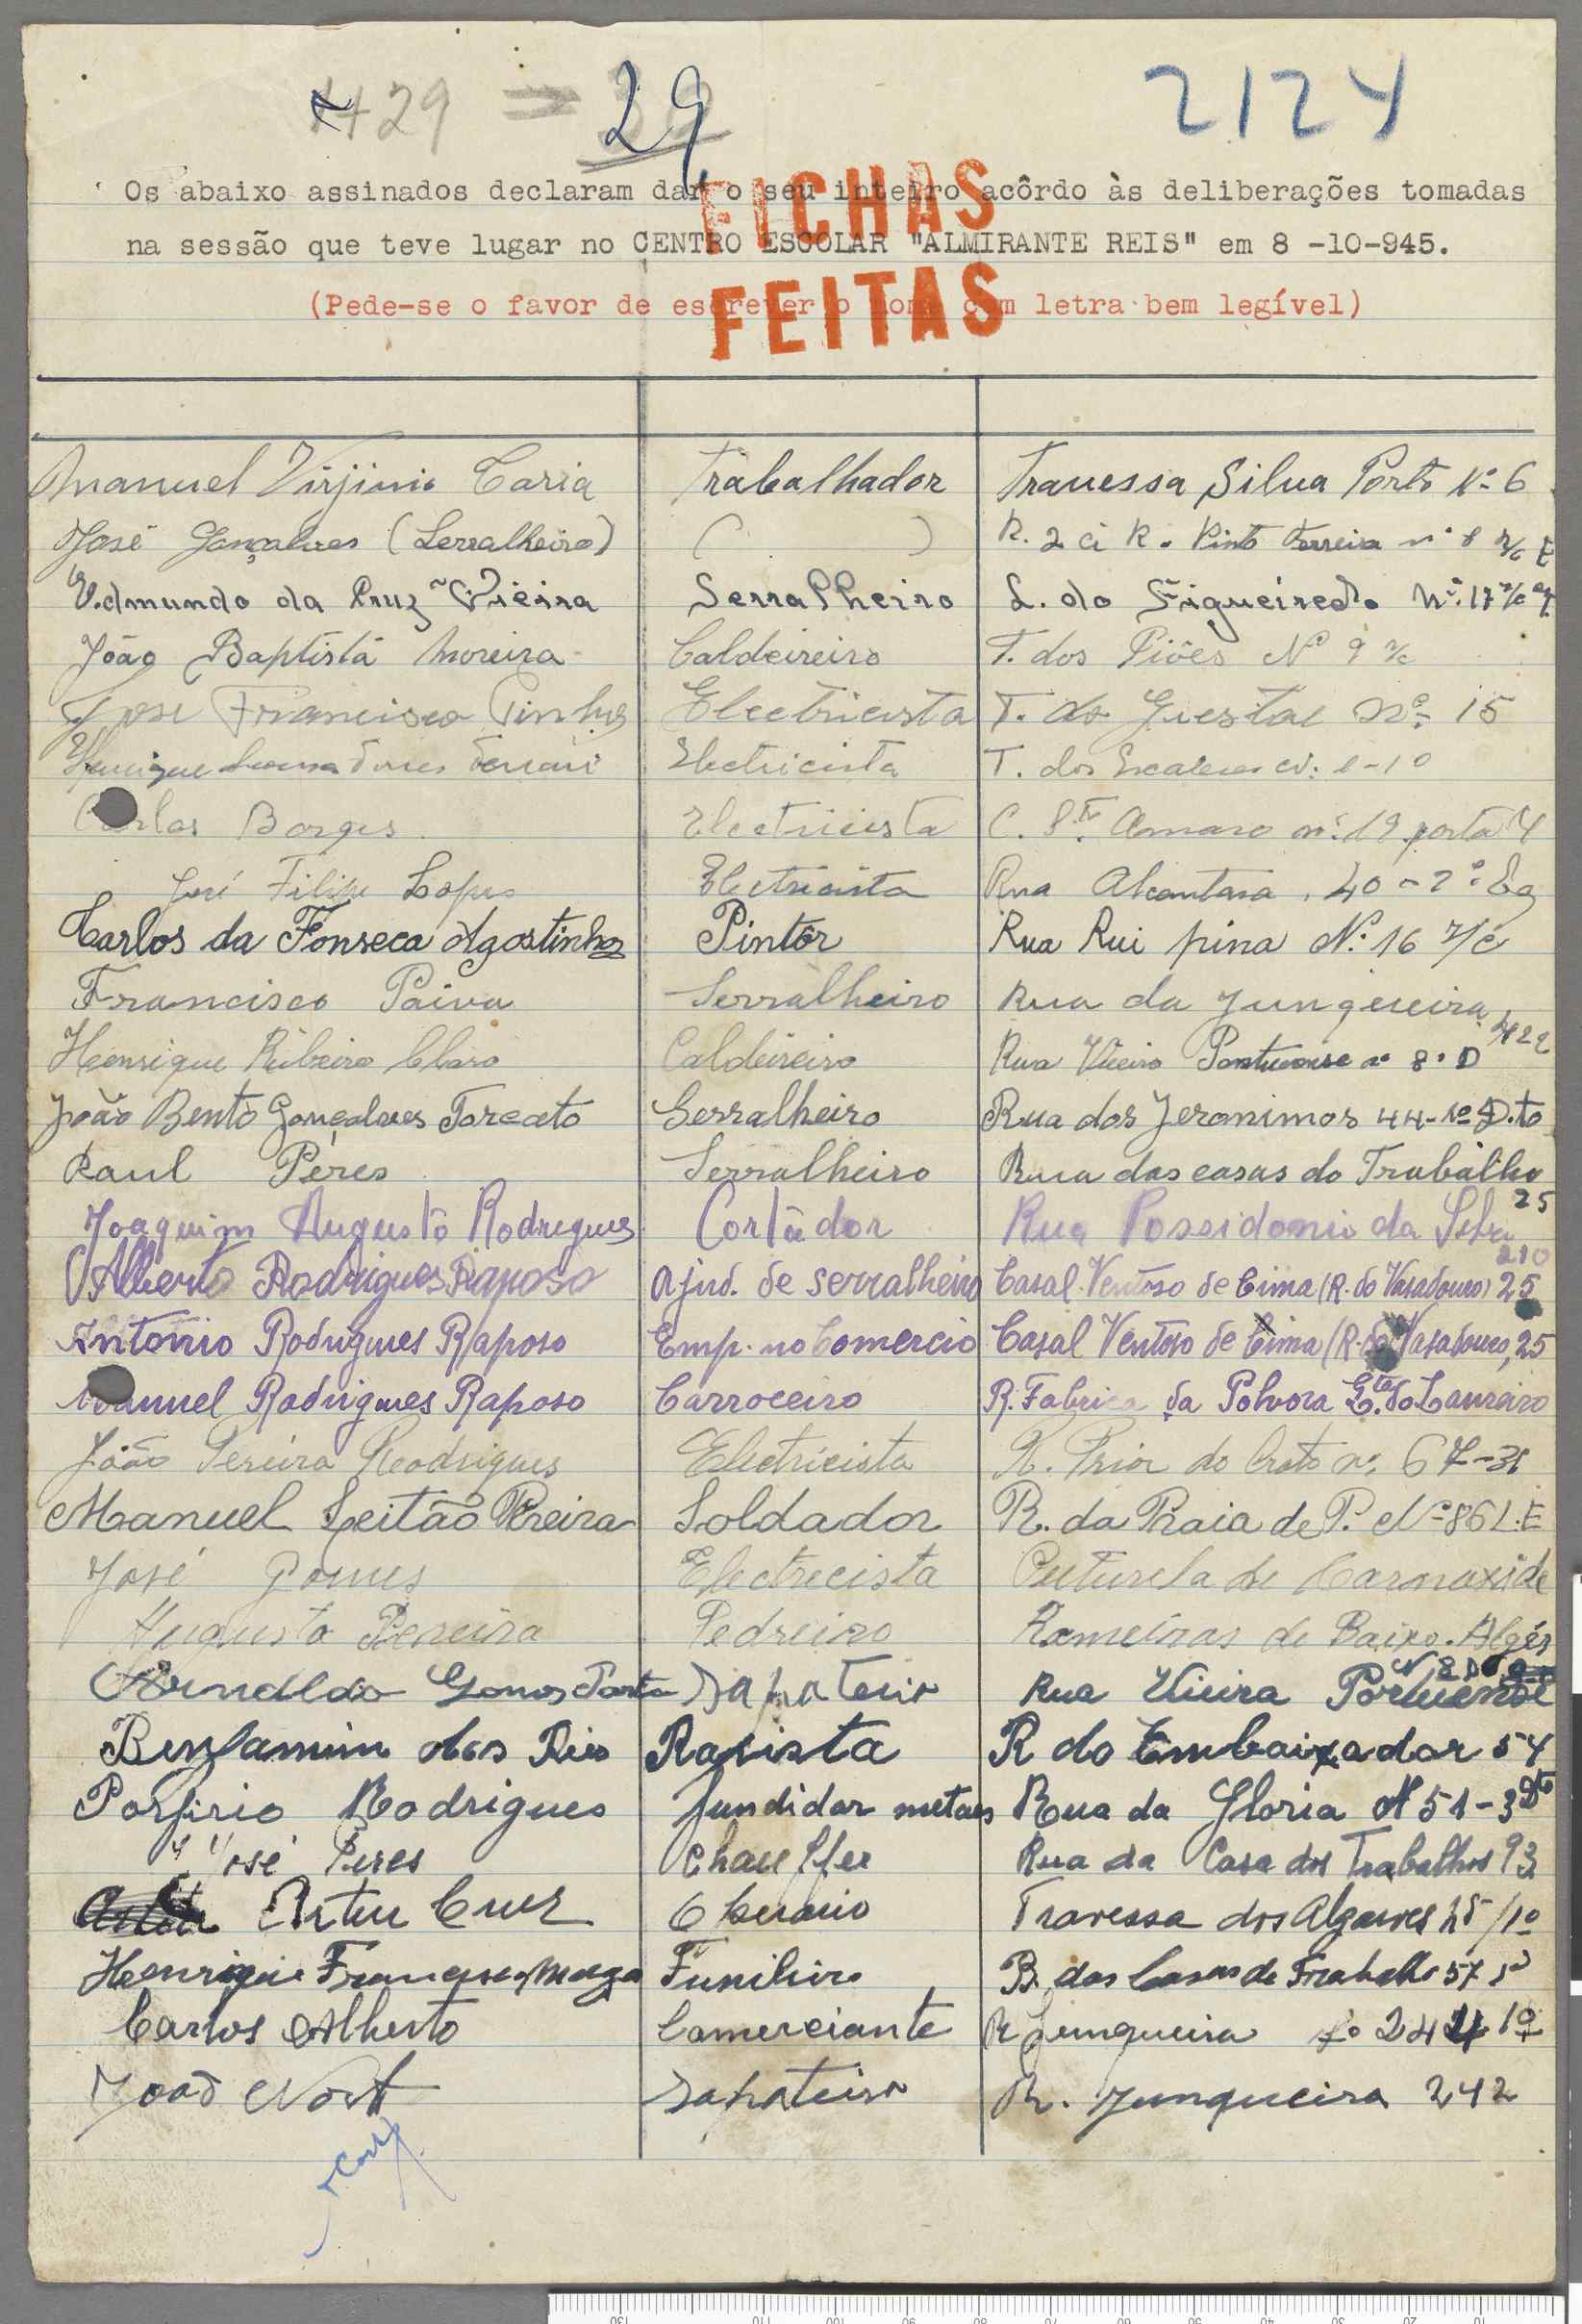 29 = 29
2124
Os abaixo assinados declaram dar o seu inteiro acôrdo às deliberações tomadas
na sessão que teve lugar no CENTRO ESCOLAR "ALMIRANTE REIS" em 8 -10-945.
(Pede-se o favor de escrever o nome com letra bem legível)
FICHAS
FEITAS
Manuel Virjinio Caria Trabalhador Travessa Silva Porto Nº 6
José Gonçalves (Serralheiro) ( ) R. 2 à R. Pinto Ferreira nº 8 r/c E
Edmundo da Cruz Vieira Serralheiro L. do Figueiredo Nº 17 r/c
João Baptista Moreira Caldeireiro T. dos Piões Nº 9 r/c
José Francisco Pinho Electricista T. do Guestal Nº 15
Henrique Electricista T. dos
Carlos Borges Electricista C. Stº Amaro nº 19 porta 4
José Filipe Lopes Electricista Rua Alcantara, 40-2º Eq
Carlos da Fonseca Agostinho Pintôr Rua Rui pina Nº 16 r/c
Francisco Paiva Serralheiro Rua da Junqueira 422
Henrique Ribeiro Claro Caldeireiro Rua Vieira Portuense nº 8 · D
João Bento Gonçalves Torcato Serralheiro Rua dos Jeronimos 44-1º D.to
Raul Péres Serralheiro Rua das casas do Trabalho 25
Joaquim Augusto Rodrigues Cortador Rua Possidonio da Silva 210
Alberto Rodrigues Raposo Ajud. de serralheiro Casal Ventoso de Cima (R. do Vasadouro) 25
Antonio Rodrigues Raposo Emp. no Comercio Casal Ventoso de Cima (R. do Vasadouro, 25
Manuel Rodrigues Raposo Carroceiro R. Fabrica da Polvora E.ta do Loureiro
João Pereira Rodrigues Electricista R. Prior do Crato nº 67-3º
Manuel Leitão Pereira Soldador R. da Praia de P. Nº 86 L.E
José Gomes Electrecista Outurela de Carnaxide
Augusto Pereira Pedreiro Romeiras de Baixo. Algés
Arnaldo Gomes Sapateiro Rua Vieira Portuense N 8 D
Benjamim dos Reis R do Embaixador 54
Porfirio Rodrigues fundidor metaes Rua da Gloria Nº 51-3 Dto
José Peres Chauffer Rua da Casa dos Trabalhos 93
Artur Cruz Operario Travessa dos Algarves 25/1º
Henrique Funileiro R. das Casas de Trabalho 57 1º
Carlos Alberto Comerciante R Junqueira nº 244 1º
João Sapateiro R. Junqueira 242